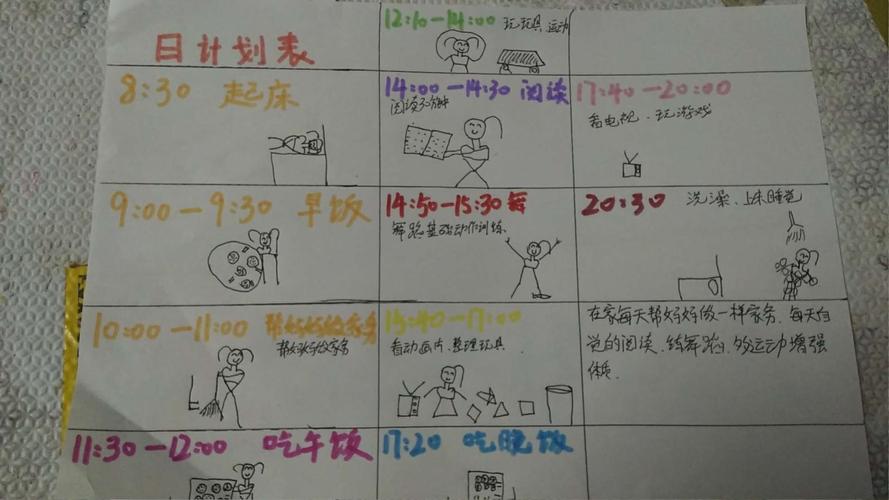 日计划表
8:30 起床
9:00-9:30 早饭
10:00-11:00 帮妈妈做家务
帮妈妈做家务
11:30-12:00 吃午饭
12:10-14:00 玩玩具、运动
14:00-14:30 阅读
阅读30分钟
14:50-15:30 舞
舞蹈基础动作训练
15:40-17:00
看动画片、整理玩具
17:20 吃晚饭
17:40-20:00
看电视、玩游戏
20:30 洗澡、上床睡觉
在家每天帮妈妈做一样家务、每天自
觉的阅读、练舞蹈、多运动增强
体质。